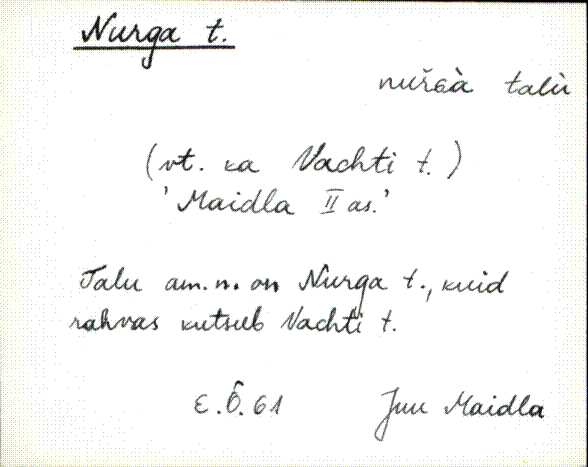 Nurga t.
nuŕɢà talù
(vt. ka Vachti t.)
'Maidla II as.'
Talu am. n. on Nurga t., kuid
rahvas kutsub Vachti t.
E. Õ. 61 Juu Maidla